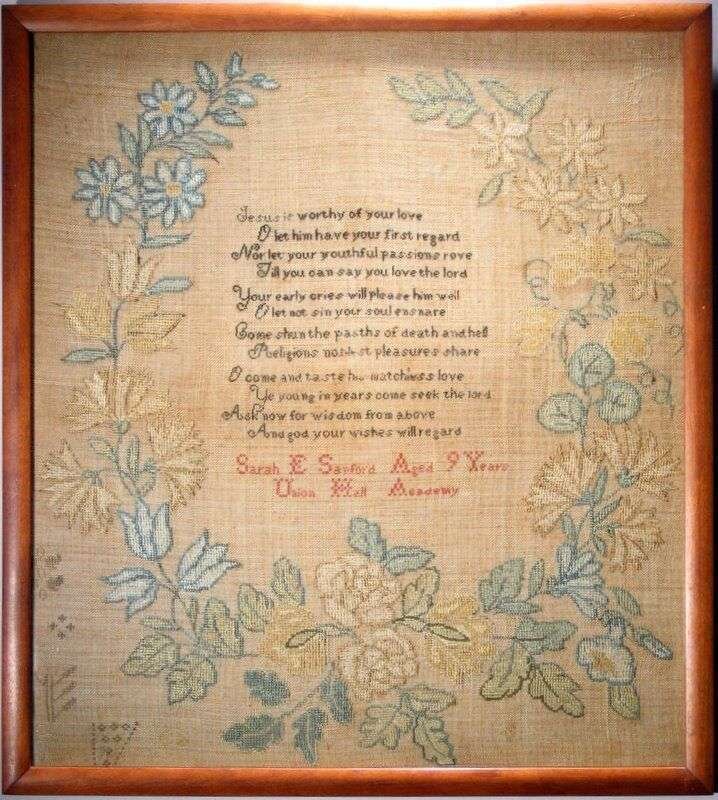 Jesus is worthy of your love
O let him have your first regard
Nor let your youthful passions rove
Till you can say you love the lord
Your early cries will please him well
O let not sin your soul ensnare
Come shun the paaths of death and hell
Religions noblest pleasures share
O come and taste his matchless love
Ye young in years come seek the lord
Ask now for wisdom from above
And god your wishes will regard
Sarah E Sanford Aged 9 Years
Union Hall Academy